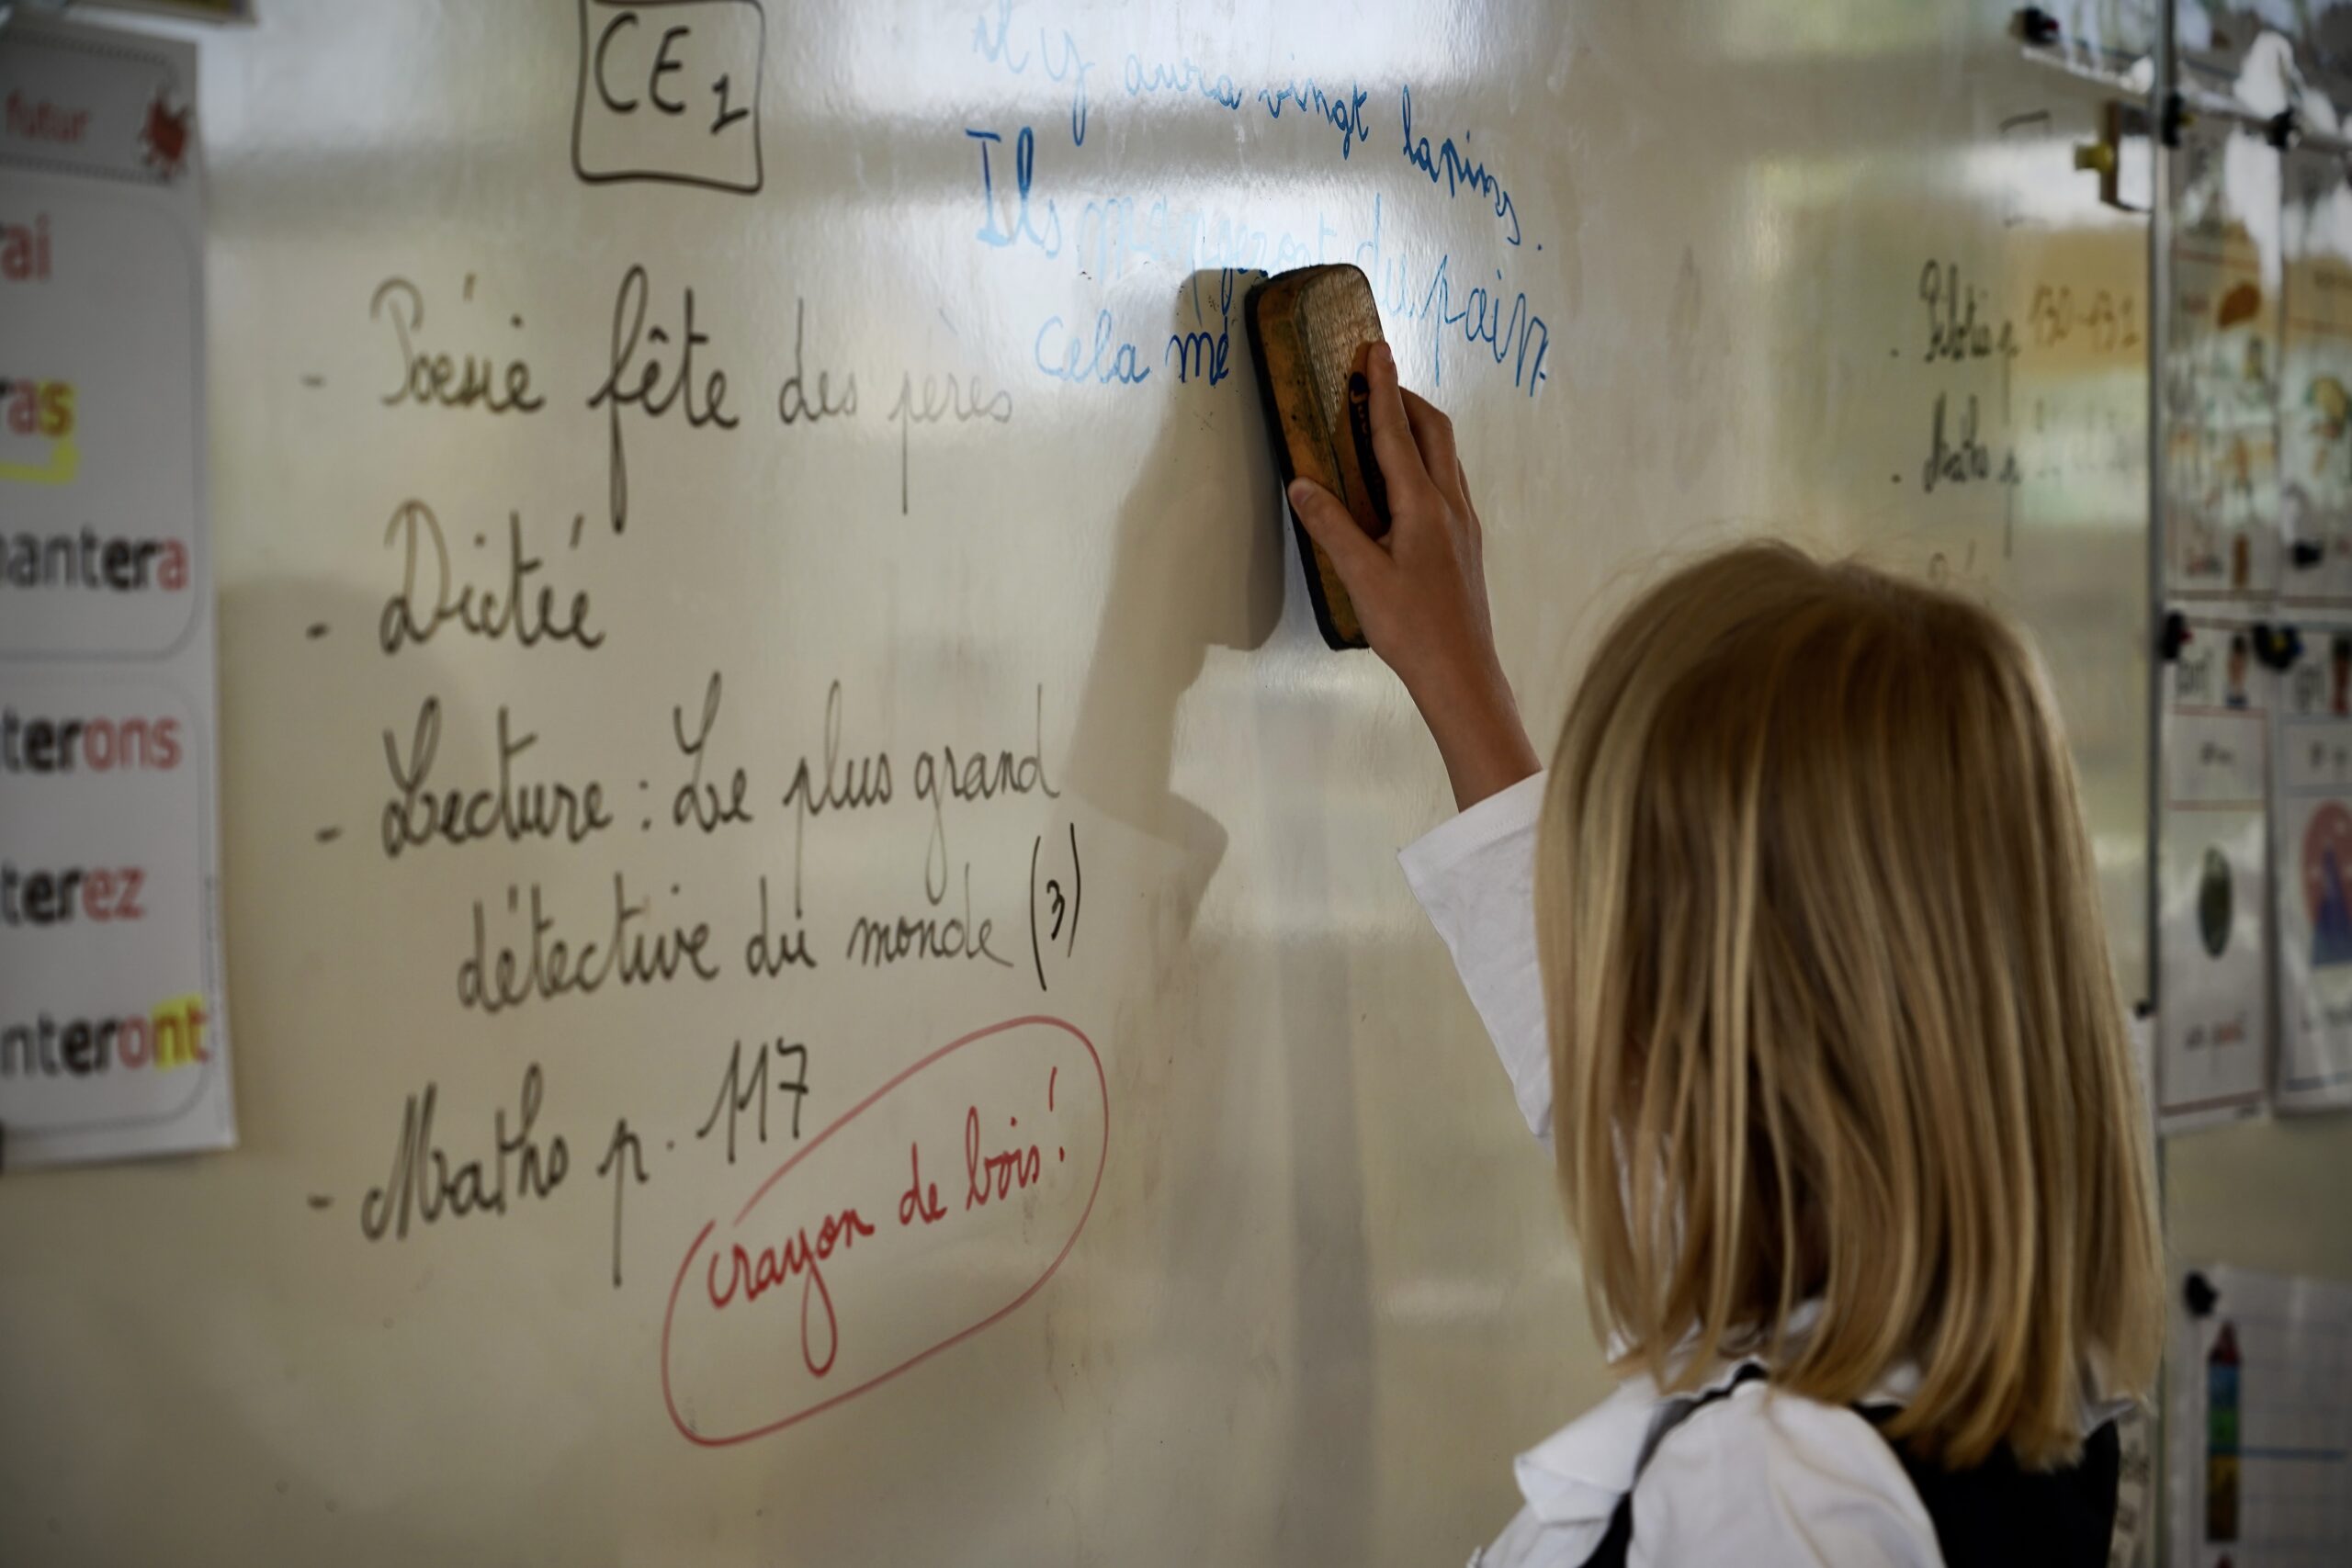 futur
ai
as
antera
terons
terez
nteront
CE1
- Poésie fête des pères
- Dictée
- Lecture : Le plus grand
détective du monde (3)
- Maths p. 117
crayon de bois !
il y aura vingt lapins.
Ils mangeront du pain.
Cela me
- p 130-131
- Maths p